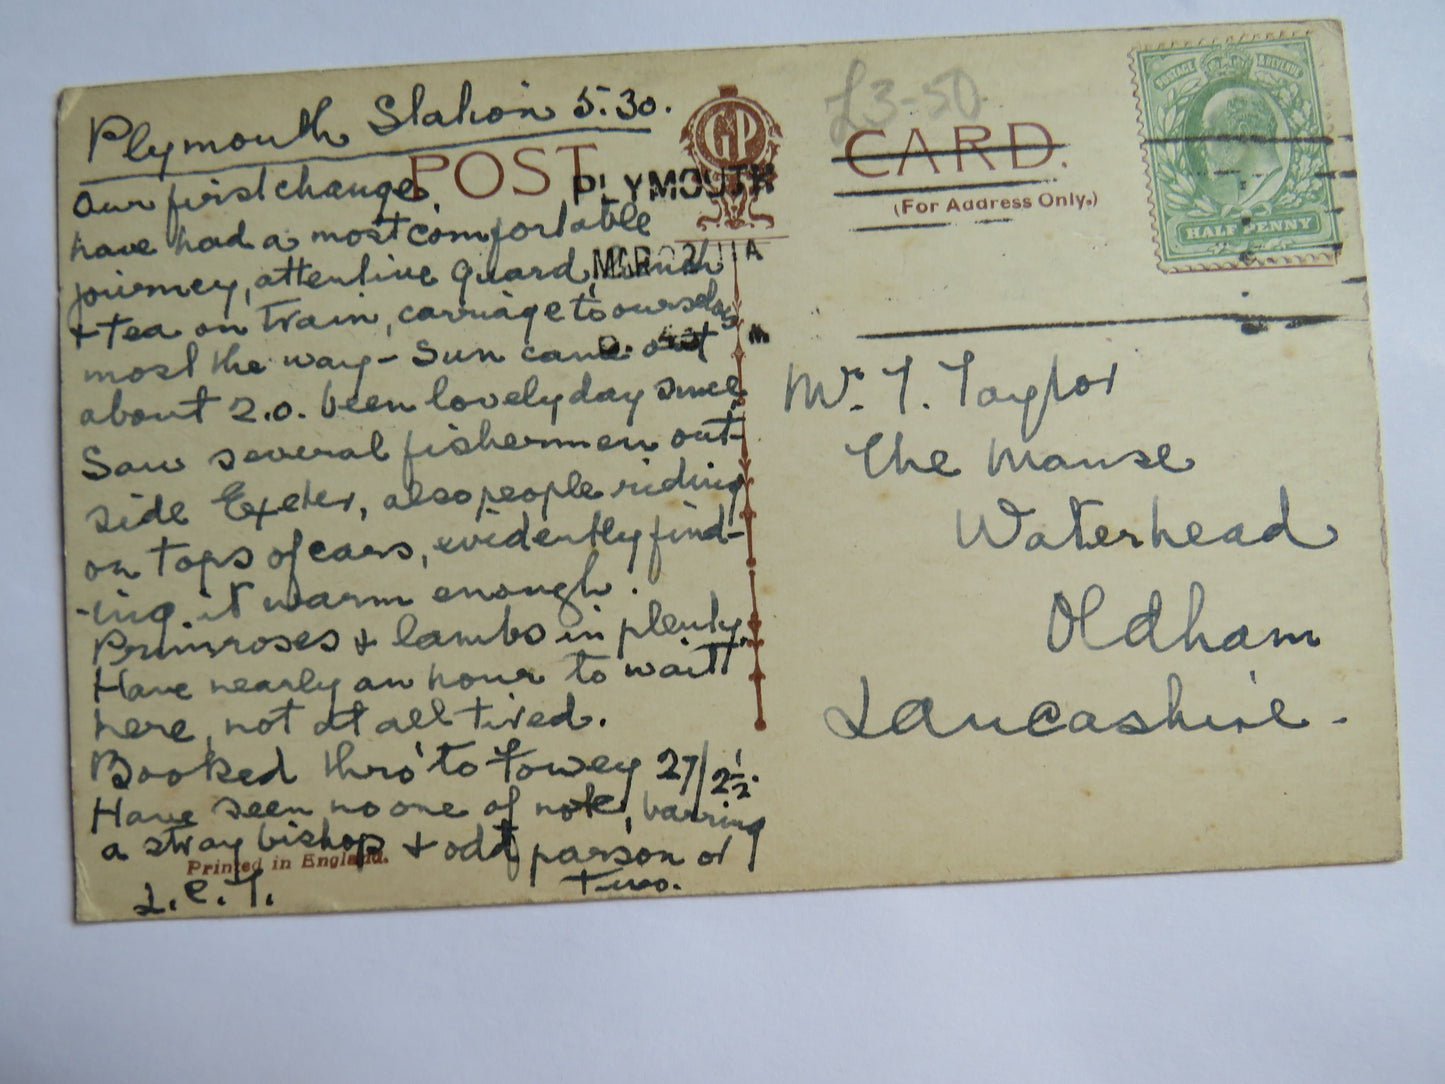 Plymouth Station 5.30.
Our first change.
have had a most comfortable
journey, attentive guard, lunch
+ tea on train, carriage to ourselves
most the way - Sun came out
about 2.0. been lovely day since
Saw several fishermen out-
side Exeter, also people riding
on tops of cars, evidently find-
-ing it warm enough.
Primroses + lambs in plenty.
Have nearly an hour to wait
here, not at all tired.
Booked thro' to Fowey 27/2½.
Have seen no one of note, barring
a stray bishop + odd parson or
two.
L.C.T.
POST CARD.
GP
(For Address Only.)
Printed in England.
£3-50
PLYMOUTH
MAR 2 11A
POSTAGE & REVENUE
HALF PENNY
Mr. T. Taylor
The Manse
Waterhead
Oldham
Lancashire.